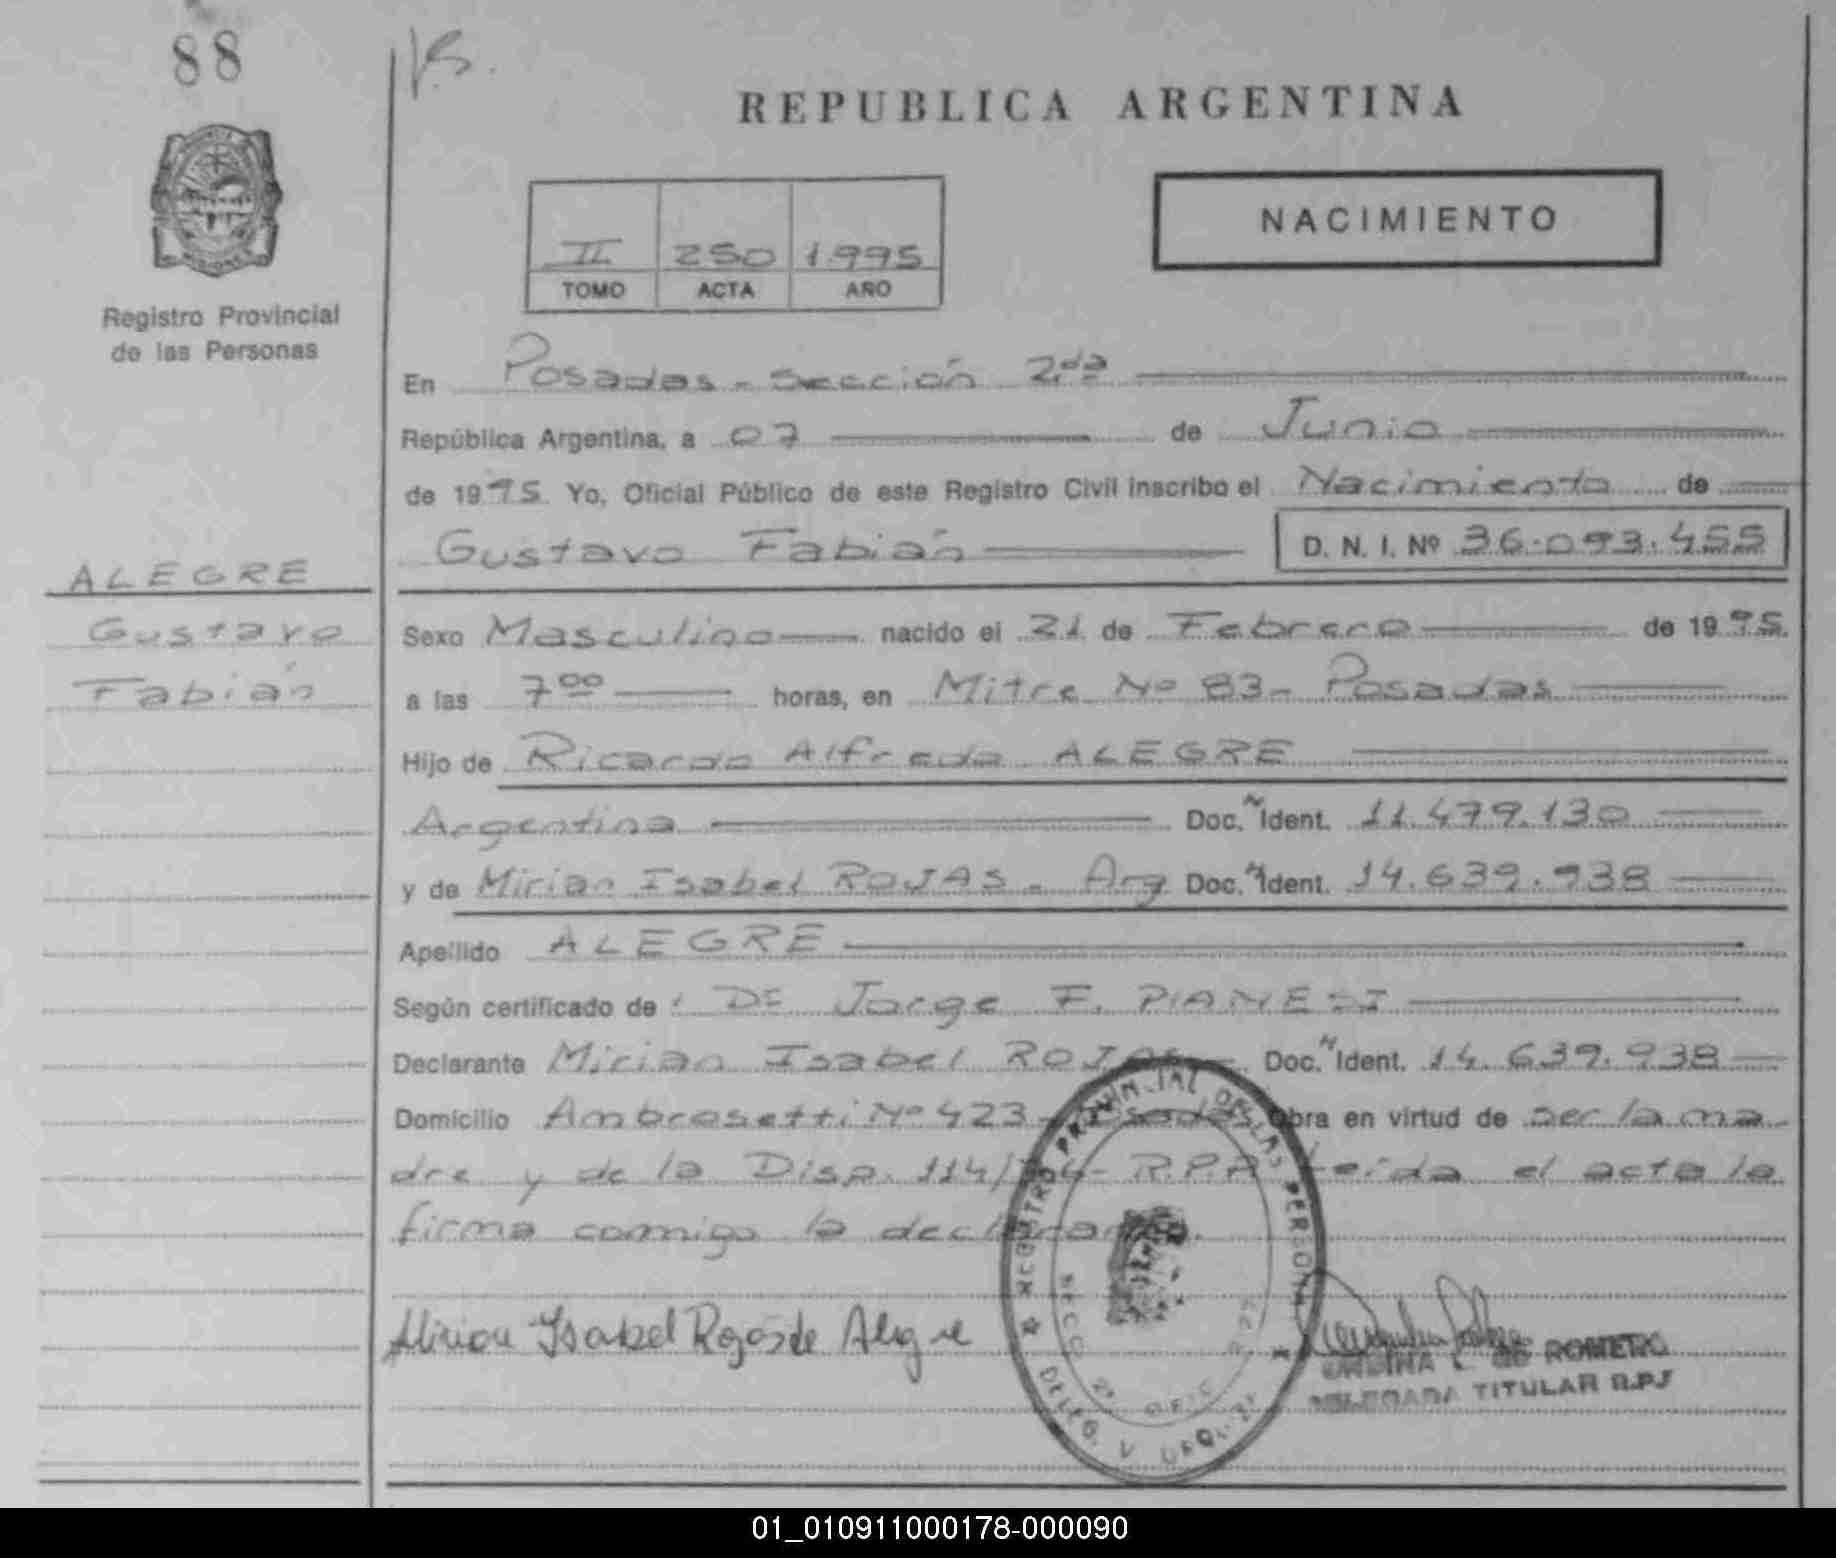 88
REPUBLICA ARGENTINA
II 250 1.995
TOMO ACTA AÑO
NACIMIENTO
Registro Provincial
de las Personas
En Posadas - Sección 2da
República Argentina, a 07 de Junio
de 1995 Yo, Oficial Público de este Registro Civil inscribo el Nacimiento de
Gustavo Fabián D. N. I. Nº 36.093.455
ALEGRE
Gustavo
Fabián
Sexo Masculino nacido el 21 de Febrero de 1995.
a las 700 horas, en Mitre Nº 83 - Posadas
Hijo de Ricardo Alfredo ALEGRE
Argentina Doc. N Ident. 11.479.130
y de Mirian Isabel ROJAS - Arg Doc. N Ident. 14.639.938
Apellido ALEGRE
Según certificado de : DE Jorge F. PIANESI
Declarante Mirian Isabel ROJAS Doc. N Ident. 14.639.938
Domicilio Ambrosetti Nº 423 - Posadas Obra en virtud de ser la ma-
dre y de la Disp. 114/ - R.P.P. Leída el acta la
firma conmigo la declarante.
Mirian Isabel Rojas de Alegre
REGISTRO PROVINCIAL DE LAS PERSONAS
SECC. 2ª
DELEG. V URQUIZA
L. de ROMERO
DELEGADA TITULAR R.P.P
01_010911000178-000090